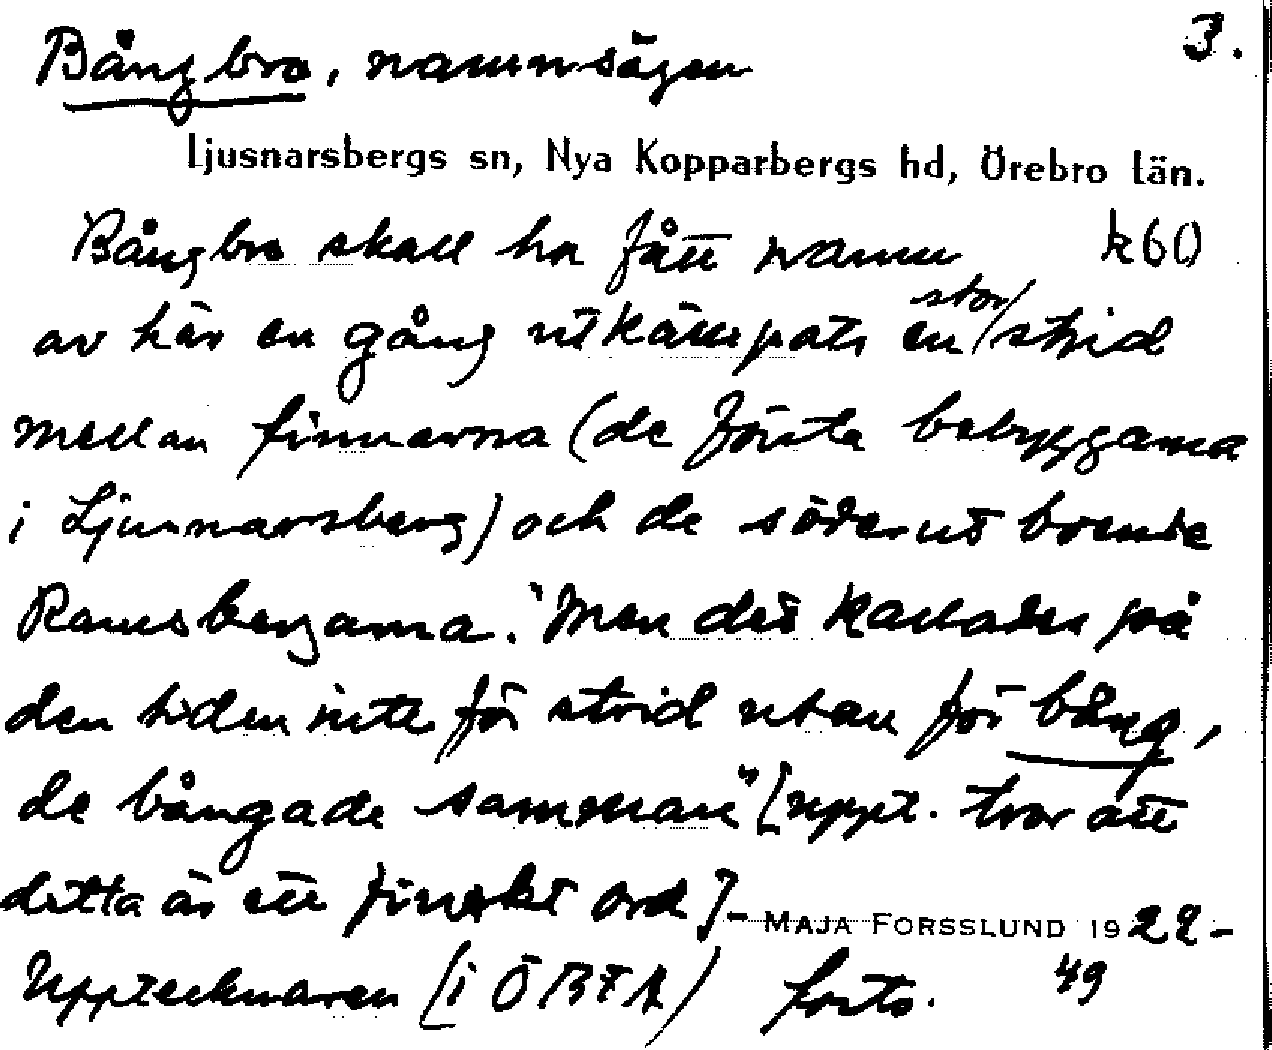 Bångbro, namnsägen 3.
Ljusnarsbergs sn, Nya Kopparbergs hd, Örebro län.
Bångbro skall ha fått namn k60
av här en gång utkämpats en stor/strid
mellan finnarna (de första bebyggarna
i Ljusnarsberg) och de söderut boende
Ramsbergarna. "Men det kallades på
den tiden inte för strid utan för bång,
de bångade samman" [uppt. tror att
detta är ett finskt ord]- MAJA FORSSLUND 1922-
Upptecknaren (i ÖBFA) forts. 49